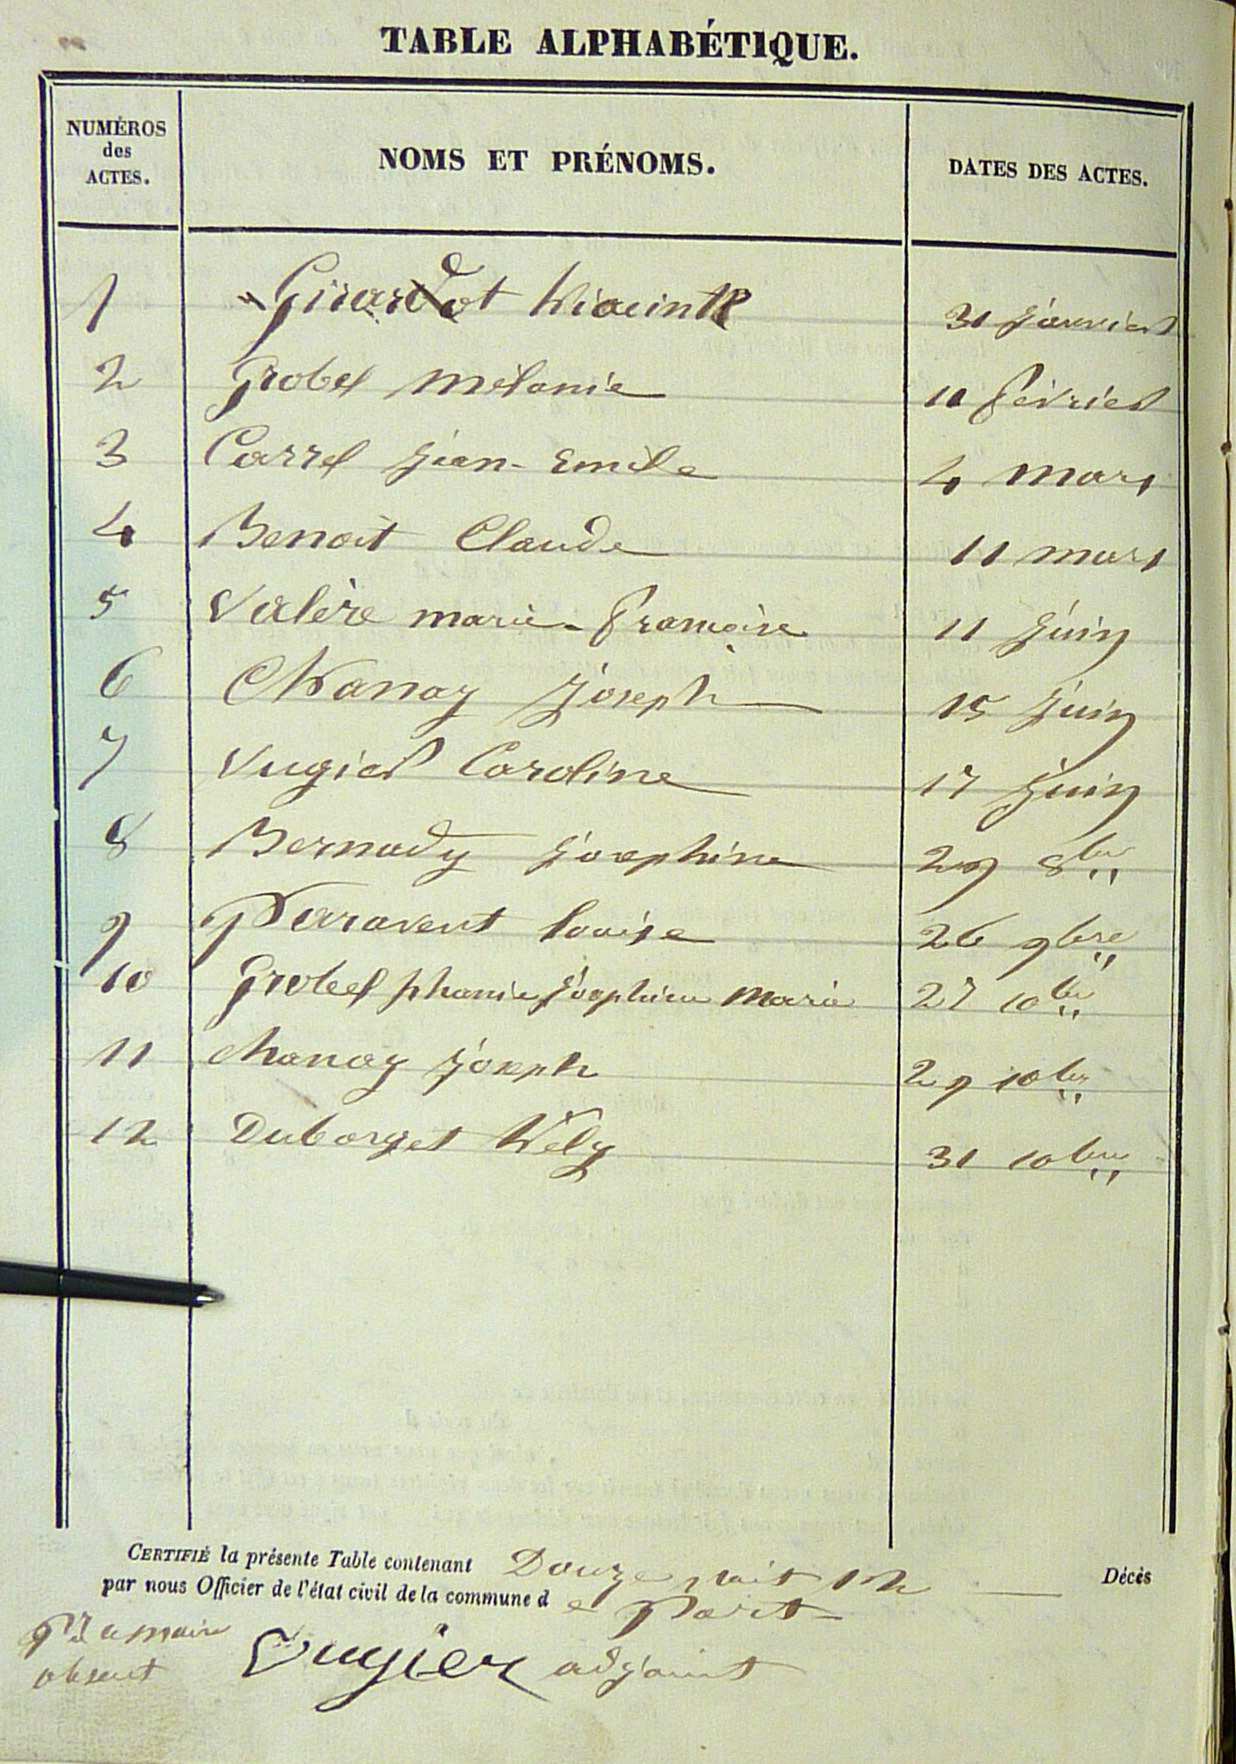 TABLE ALPHABÉTIQUE.
NUMÉROS des ACTES. NOMS ET PRÉNOMS. DATES DES ACTES.
1 Girardot hiacinte 31 janvier
2 Grobel mélanie 11 février
3 Carrel jean-Emile 4 mars
4 Benoit Claude 11 mars
5 Valère marie-françoise 11 juin
6 Chanay joseph 15 juin
7 Vugier Caroline 17 juin
8 Bernady josephine 29 8bre
9 Paravent louise 26 9bre
10 Grobel phanie josephine marie 27 10bre
11 chanay joseph 29 10bre
12 Duborget hély 31 10bre
CERTIFIÉ la présente Table contenant Douze soit 12 Décès
par nous Officier de l'état civil de la commune de Port
Pr le maire
absent
Vugier adjoint